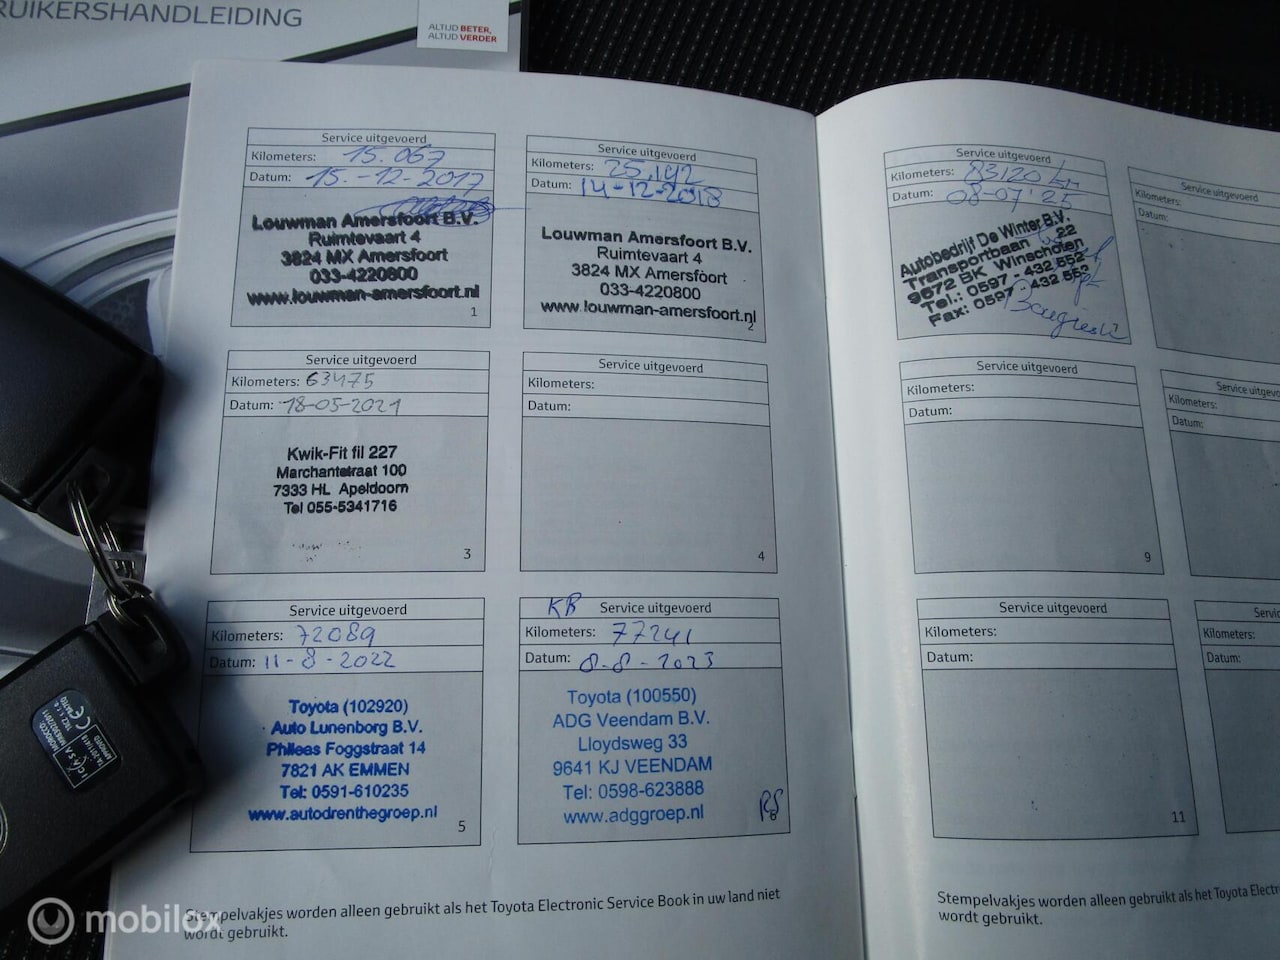 RUIKERSHANDLEIDING
ALTIJD BETER,
ALTIJD VERDER
Service uitgevoerd
Kilometers: 15.067
Datum: 15.-12-2017
Louwman Amersfoort B.V.
Ruimtevaart 4
3824 MX Amersfoort
033-4220800
www.louwman-amersfoort.nl
1
Service uitgevoerd
Kilometers: 25.142
Datum: 14-12-2018
Louwman Amersfoort B.V.
Ruimtevaart 4
3824 MX Amersfoort
033-4220800
www.louwman-amersfoort.nl
2
Service uitgevoerd
Kilometers: 63475
Datum: 18-05-2021
Kwik-Fit fil 227
Marchantstraat 100
7333 HL Apeldoorn
Tel 055-5341716
3
Service uitgevoerd
Kilometers:
Datum:
4
Service uitgevoerd
Kilometers: 72089
Datum: 11-8-2022
Toyota (102920)
Auto Lunenborg B.V.
Phileas Foggstraat 14
7821 AK EMMEN
Tel: 0591-610235
www.autodrenthegroep.nl
5
KB Service uitgevoerd
Kilometers: 77241
Datum: 8-8-2023
Toyota (100550)
ADG Veendam B.V.
Lloydsweg 33
9641 KJ VEENDAM
Tel: 0598-623888
www.adggroep.nl
Stempelvakjes worden alleen gebruikt als het Toyota Electronic Service Book in uw land niet
wordt gebruikt.
Service uitgevoerd
Kilometers: 83120 km
Datum: 08-07'25
Autobedrijf De Winter B.V.
Transportbaan 22
9672 BK Winschoten
Tel.: 0597 - 432 552
Fax: 0597 - 432 553
7
Service uitgevoerd
Kilometers:
Datum:
Service uitgevoerd
Kilometers:
Datum:
9
Service uitgevoe
Kilometers:
Datum:
Service uitgevoerd
Kilometers:
Datum:
11
Servic
Kilometers:
Datum:
Stempelvakjes worden alleen gebruikt als het Toyota Electr
wordt gebruikt.
mobilox